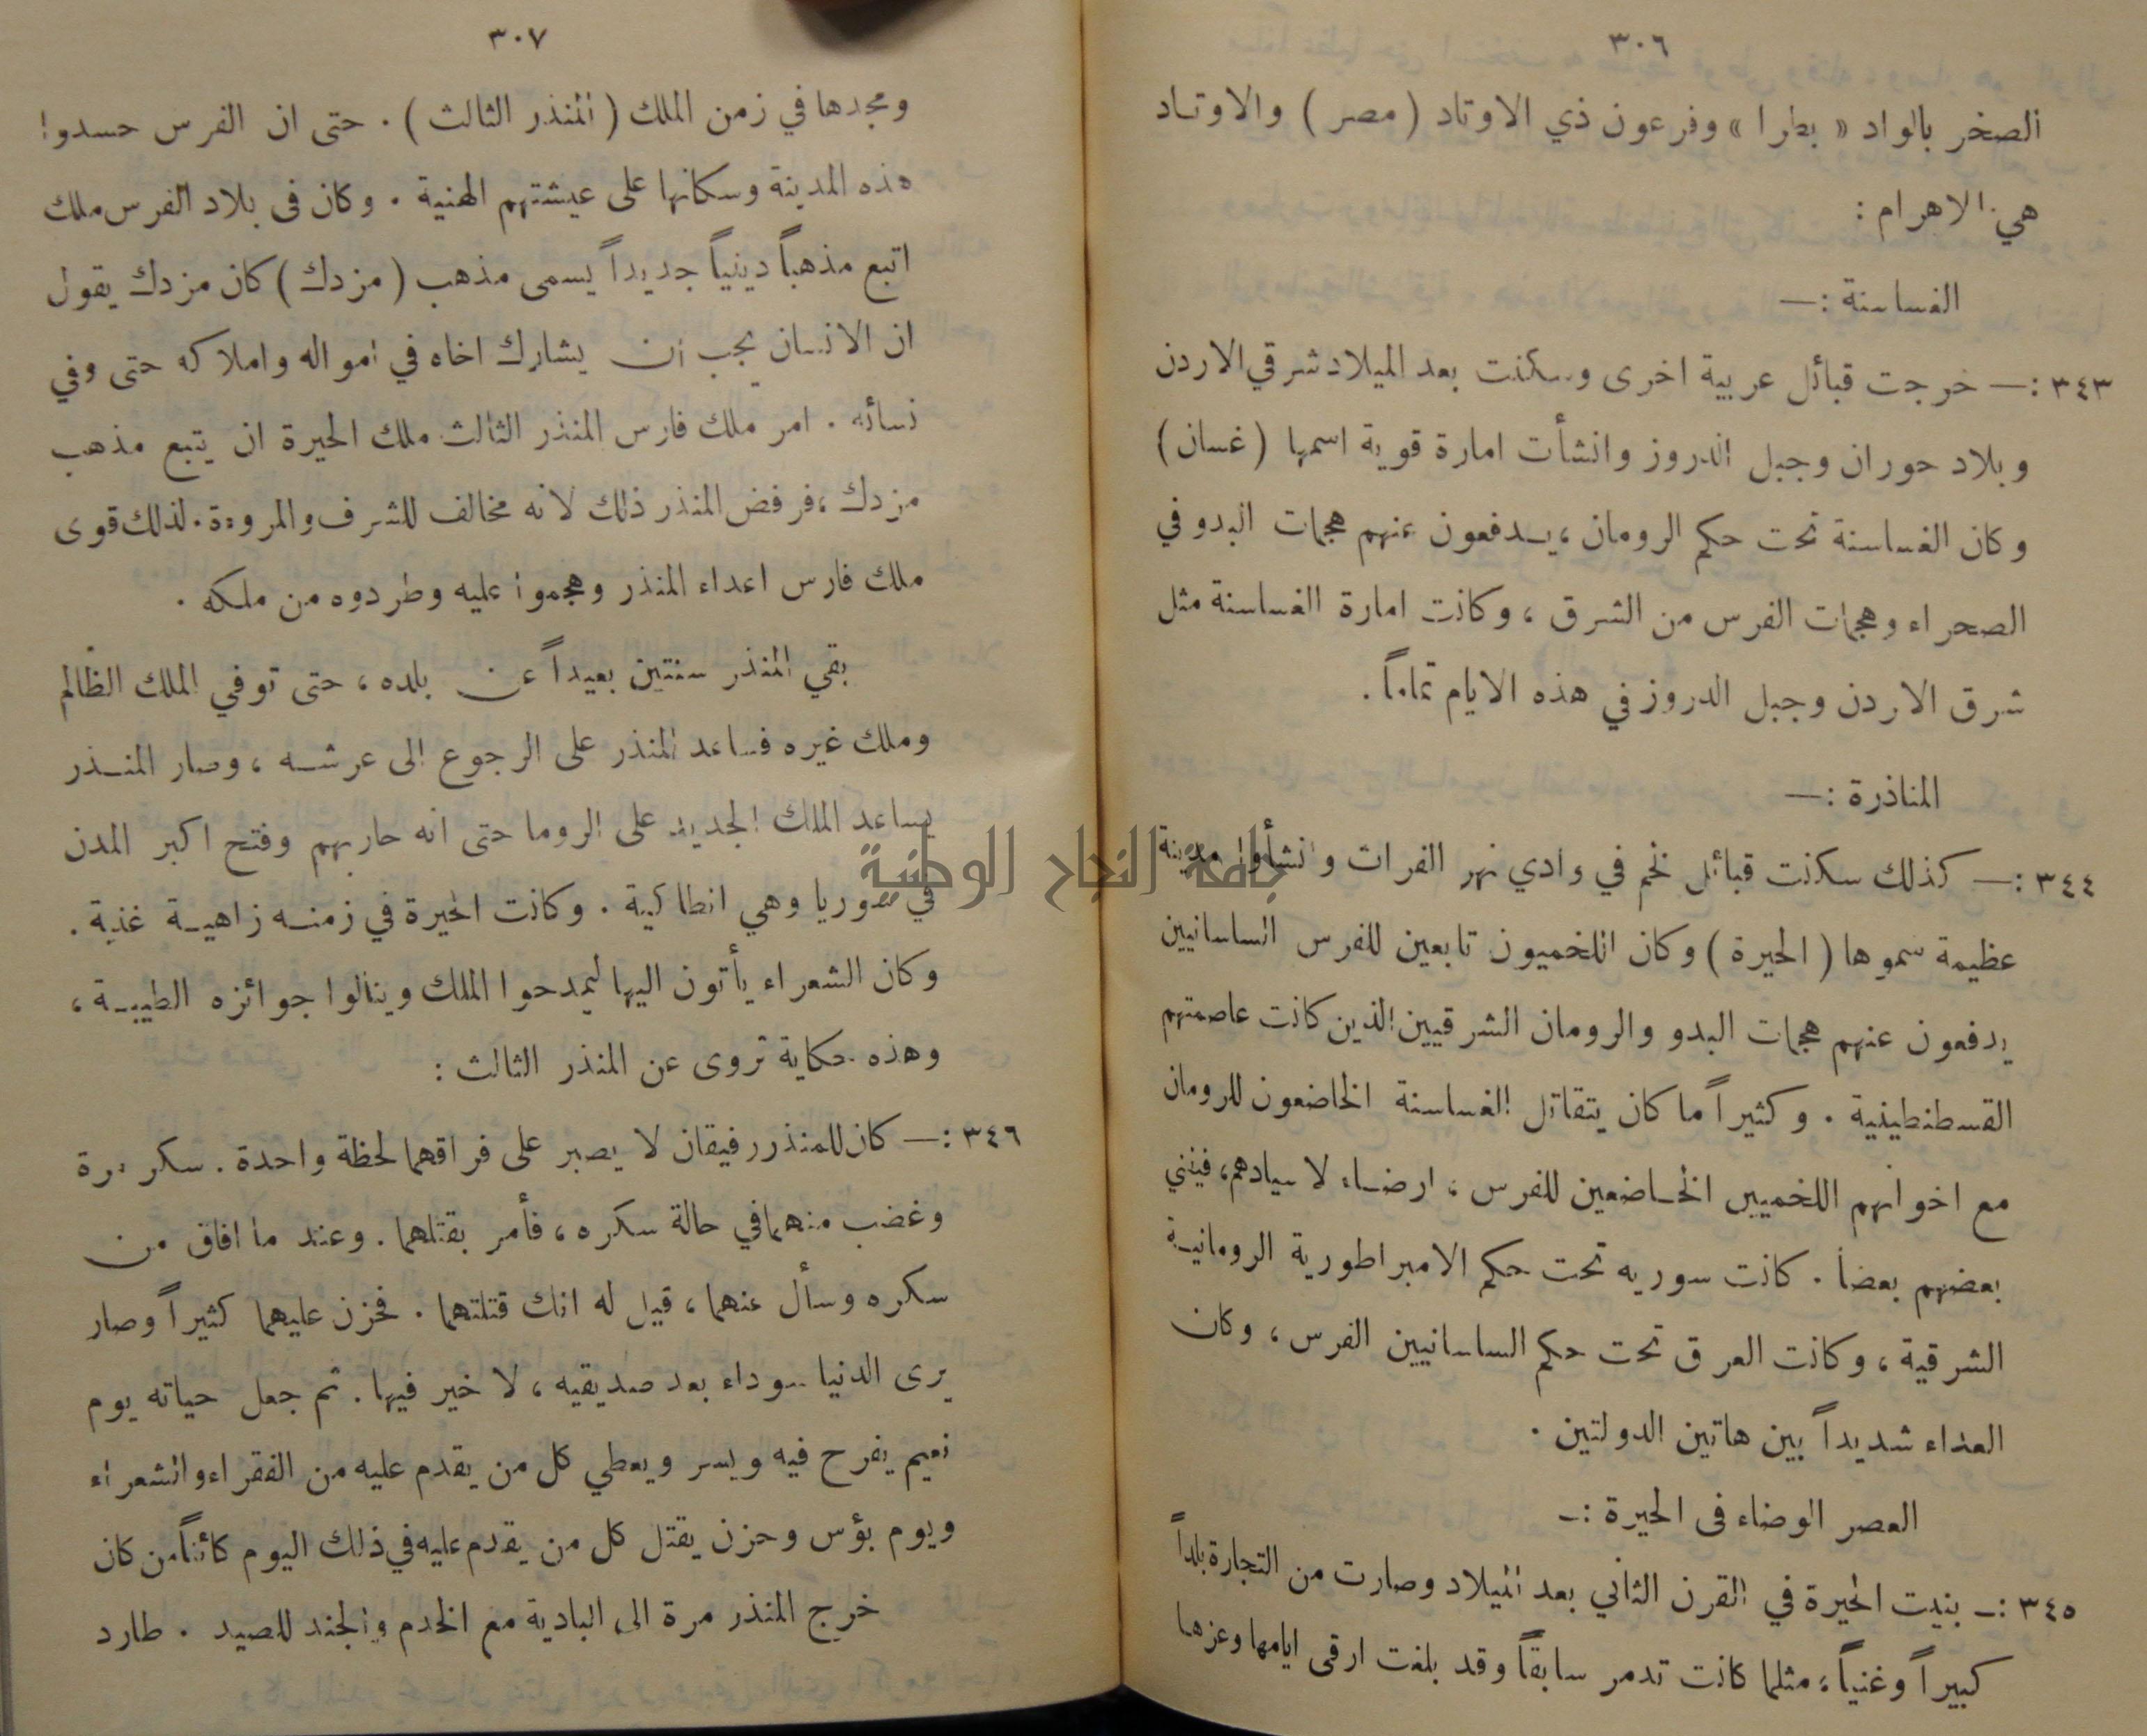 ٣٠٦
الصخر بالواد « بطرا » وفرعون ذي الاوتاد ( مصر ) والاوتاد
هي الاهرام :
الغساسنة :—
٣٤٣ :— خرجت قبائل عربية اخرى وسكنت بعد الميلاد شرقي الاردن
وبلاد حوران وجبل الدروز وانشأت امارة قوية اسمها ( غسان )
وكان الغساسنة تحت حكم الرومان ، يدفعون عنهم هجمات البدو في
الصحراء وهجمات الفرس من الشرق ، وكانت امارة الغساسنة مثل
شرق الاردن وجبل الدروز في هذه الايام تماماً .
المناذرة :—
٣٤٤ :— كذلك سكنت قبائل لخم في وادي نهر الفرات وانشأوا مدينة
عظيمة سموها ( الحيرة ) وكان اللخميون تابعين للفرس الساسانيين
يدفعون عنهم هجمات البدو والرومان الشرقيين الذين كانت عاصمتهم
القسطنطينية . وكثيراً ما كان يتقاتل الغساسنة الخاضعون للرومان
مع اخوانهم اللخميين الخاضعين للفرس ، ارضاء لاسيادهم ، فيفني
بعضهم بعضاً . كانت سوريه تحت حكم الامبراطورية الرومانية
الشرقية ، وكانت العرق تحت حكم الساسانيين الفرس ، وكان
العداء شديداً بين هاتين الدولتين .
العصر الوضاء في الحيرة :-
٣٤٥ :- بنيت الحيرة في القرن الثاني بعد الميلاد وصارت من التجارة بلداً
كبيراً وغنياً ، مثلما كانت تدمر سابقاً وقد بلغت ارقى ايامها وعزها
٣٠٧
ومجدها في زمن الملك ( المنذر الثالث ) . حتى ان الفرس حسدوا
هذه المدينة وسكانها على عيشتهم الهنية . وكان في بلاد الفرس ملك
اتبع مذهباً دينياً جديداً يسمى مذهب ( مزدك ) كان مزدك يقول
ان الانسان يجب ان يشارك اخاه في امواله واملاكه حتى وفي
نسائه . امر ملك فارس المنذر الثالث ملك الحيرة ان يتبع مذهب
مزدك ، فرفض المنذر ذلك لانه مخالف للشرف والمروءة . لذلك قوى
ملك فارس اعداء المنذر وهجموا عليه وطردوه من ملكه .
بقي المنذر سنتين بعيداً عن بلده ، حتى توفي الملك الظالم
وملك غيره فساعد المنذر على الرجوع الى عرشه ، وصار المنذر
يساعد الملك الجديد على الروما حتى انه حاربهم وفتح اكبر المدن
في سوريا وهي انطاكية . وكانت الحيرة في زمنه زاهية غنية .
وكان الشعراء يأتون اليها ليمدحوا الملك وينالوا جوائزه الطيبة ،
وهذه حكاية تروى عن المنذر الثالث :
٣٤٦ :— كان للمنذر رفيقان لا يصبر على فراقهما لحظة واحدة . سكر مرة
وغضب منهما في حالة سكره ، فأمر بقتلهما . وعند ما افاق من
سكره وسأل عنهما ، قيل له انك قتلتهما . فحزن عليهما كثيراً وصار
يرى الدنيا سوداء بعد صديقيه ، لا خير فيها . ثم جعل حياته يوم
نعيم يفرح فيه ويسر ويعطي كل من يقدم عليه من الفقراء والشعراء
ويوم بؤس وحزن يقتل كل من يقدم عليه في ذلك اليوم كائناً من كان
خرج المنذر مرة الى البادية مع الخدم والجند للصيد . طارد
جامعة النجاح الوطنية